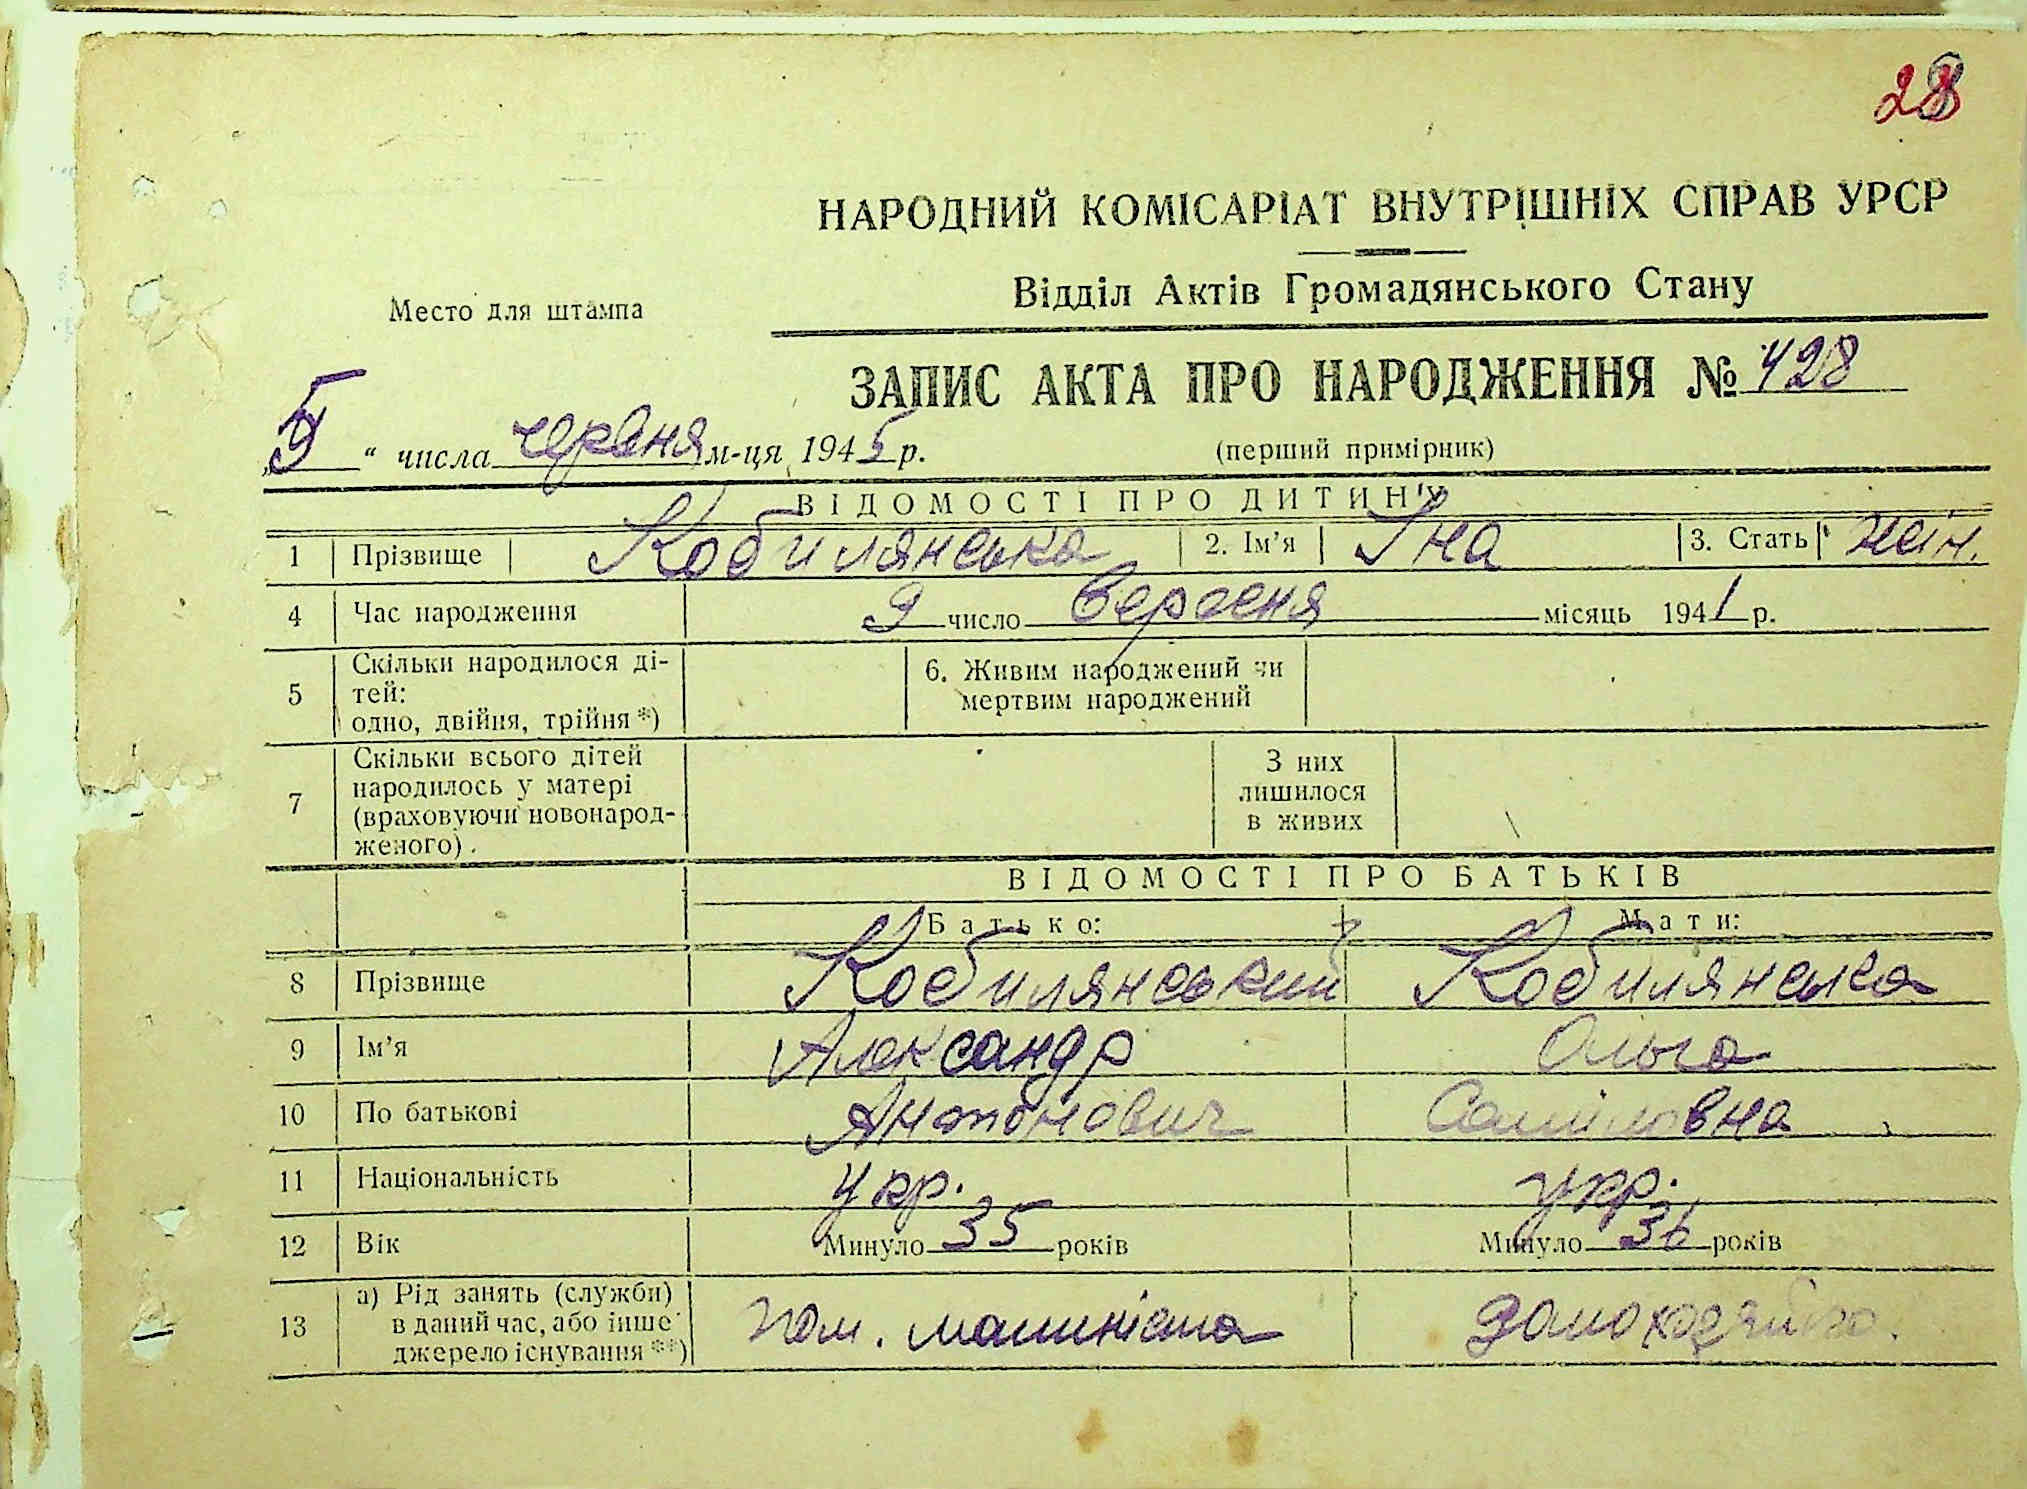 28
НАРОДНИЙ КОМІСАРІАТ ВНУТРІШНІХ СПРАВ УРСР
Место для штампа
Відділ Актів Громадянського Стану
ЗАПИС АКТА ПРО НАРОДЖЕННЯ № 428
„5“ числа червня м-ця 1945 р.
(перший примірник)
ВІДОМОСТІ ПРО ДИТИНУ
1 Прізвище Кобилянська 2. Ім'я Іна 3. Стать жін.
4 Час народження 9 число вересня місяць 1941 р.
5 Скільки народилося ді-
тей:
одно, двійня, трійня *)
6. Живим народжений чи
мертвим народжений
7 Скільки всього дітей
народилось у матері
(враховуючи новонарод-
женого).
З них
лишилося
в живих
ВІДОМОСТІ ПРО БАТЬКІВ
Батько: Мати:
8 Прізвище Кобилянський Кобилянська
9 Ім'я Александр Ольга
10 По батькові Антонович Самиловна
11 Національність укр. укр.
12 Вік Минуло 35 років Минуло 36 років
13 а) Рід занять (служби)
в даний час, або інше
джерело існування **)
пом. машиніста домохозяйка.